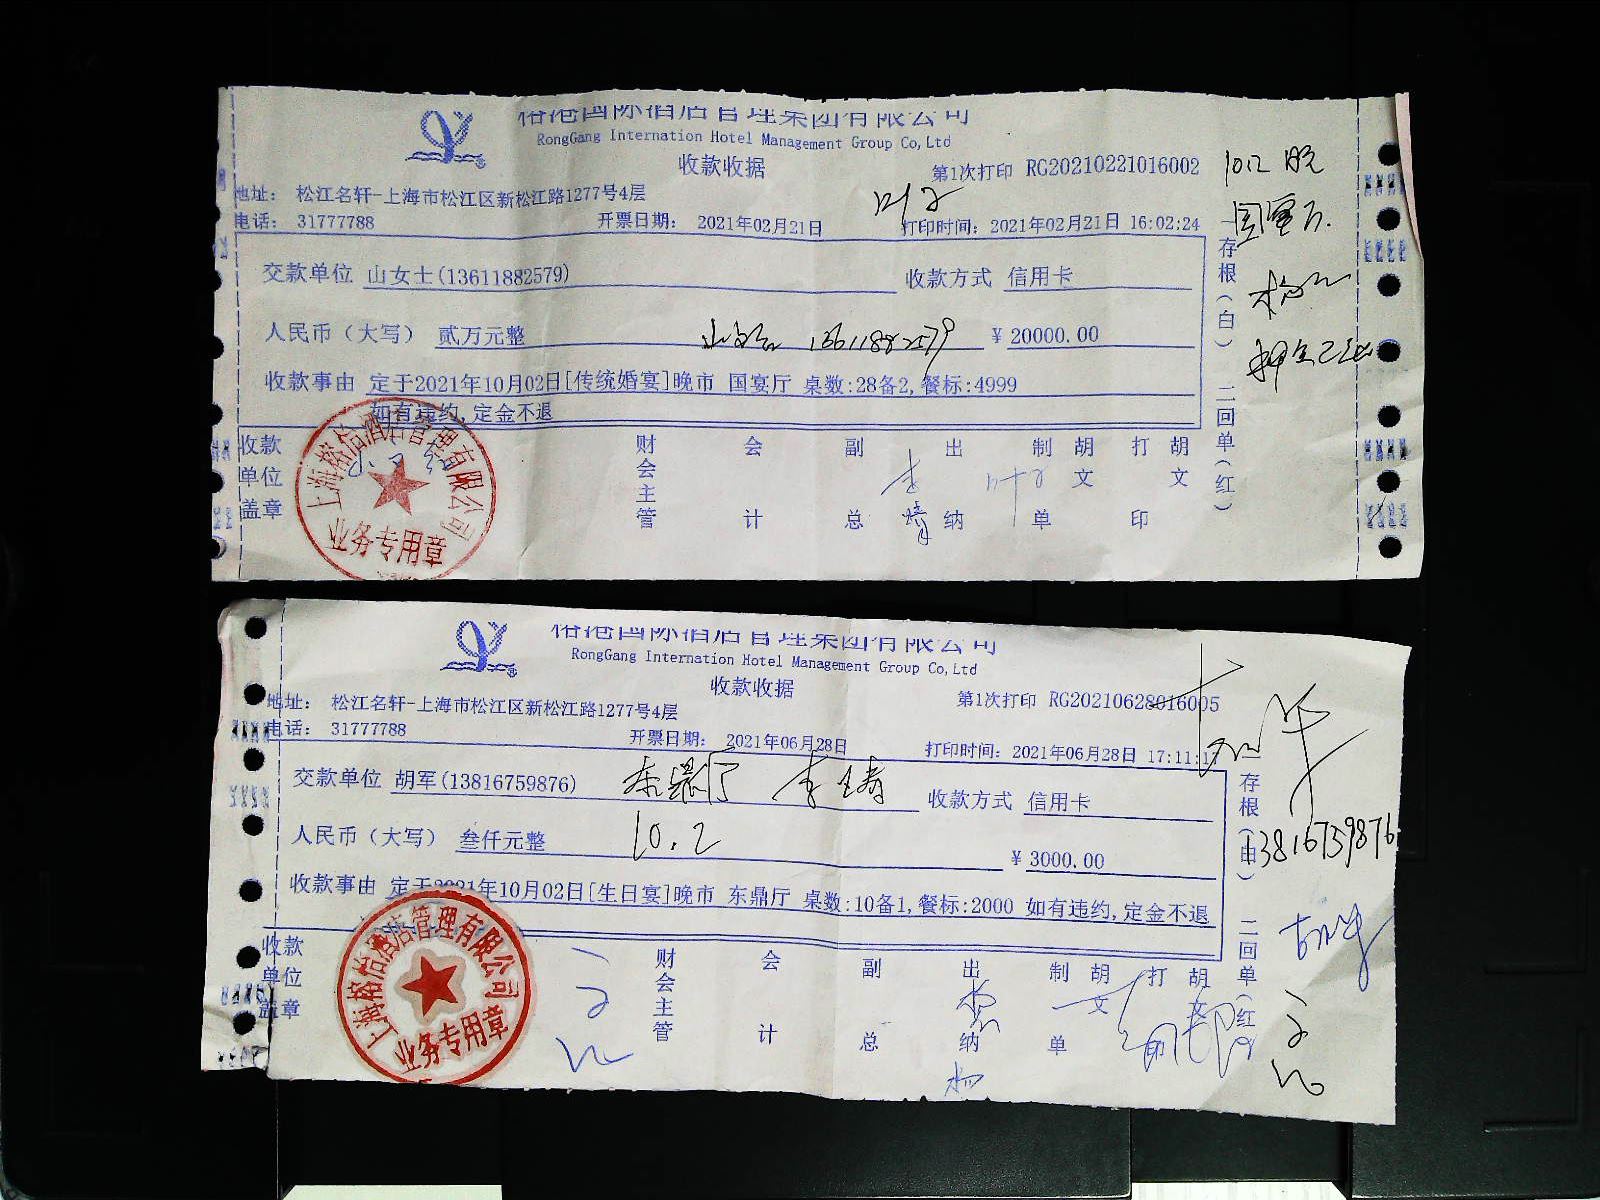 榕港国际酒店管理集团有限公司
RongGang Internation Hotel Management Group Co,Ltd
收款收据
第1次打印 RG20210221016002
地址: 松江名轩-上海市松江区新松江路1277号4层
电话: 31777788
开票日期: 2021年02月21日
打印时间: 2021年02月21日 16:02:24
交款单位 山女士(13611882579)
收款方式 信用卡
人民币（大写） 贰万元整
13611882579
¥20000.00
收款事由 定于2021年10月02日[传统婚宴]晚市 国宴厅 桌数:28备2,餐标:4999
如有违约,定金不退
收款单位盖章
财会主管
会计
副总
出纳
制单
胡文
打印
胡文
存根(白) 二回单(红)
10.2
上海榕怡酒店管理有限公司
业务专用章
榕港国际酒店管理集团有限公司
RongGang Internation Hotel Management Group Co,Ltd
收款收据
第1次打印 RG20210628016005
地址: 松江名轩-上海市松江区新松江路1277号4层
电话: 31777788
开票日期: 2021年06月28日
打印时间: 2021年06月28日 17:11:1
交款单位 胡军(13816759876)
东鼎厅
收款方式 信用卡
人民币（大写） 叁仟元整
10.2
¥3000.00
收款事由 定于2021年10月02日[生日宴]晚市 东鼎厅 桌数:10备1,餐标:2000 如有违约,定金不退
收款单位盖章
财会主管
会计
副总
出纳
制单
胡文
打印
胡文
一存根(白) 二回单(红)
胡军
13816759876
上海榕怡酒店管理有限公司
业务专用章